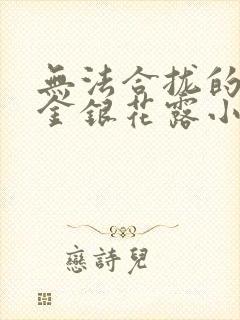 無法合拢的
金銀花露小
戀詩兒